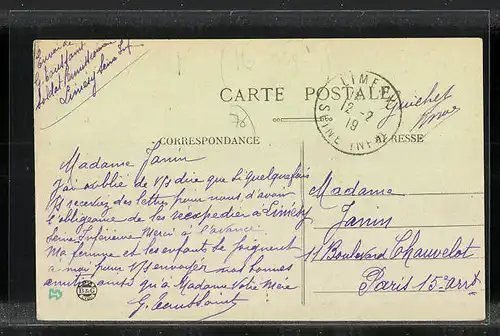 Envoi de
G. Toussaint
Soldat
Limésy Seine Inf
CARTE POSTALE
LIMESY
12-2
19
SEINE INFRE
78
Guichet
CORRESPONDANCE
ADRESSE
Madame Janin
J'ai oublié de Vs dire que si quelquefois
Vs receviez des lettres pour nous, d'avoir
l'obligeance de les réexpedier à Limésy
Seine Inférieure Merci à l'avance
Ma femme et les enfants se joignent
à moi pour Vs envoyer nos bonnes
amitiés ainsi qu'à Madame Votre Mère
G. Toussaint
Madame
Janin
11 Boulevard Chauvelot
Paris 15e arrt
B&G